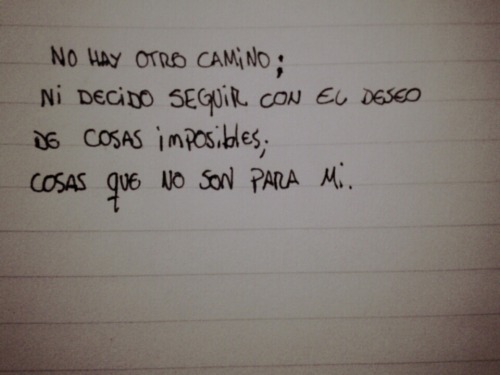 NO HAY OTRO CAMINO;
Ni DECIDO SEGUIR CON EL DESEO
DE COSAS imposibles;
COSAS QUE NO SON PARA Mi.